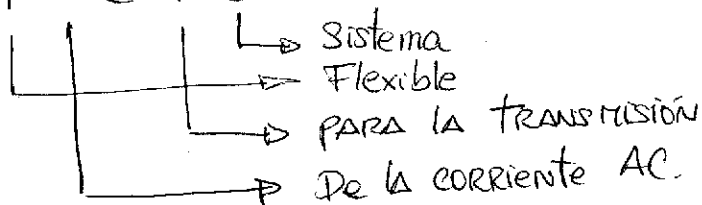 Sistema
Flexible
PARA LA TRANSMISIÓN
De la CORRIENTE AC.